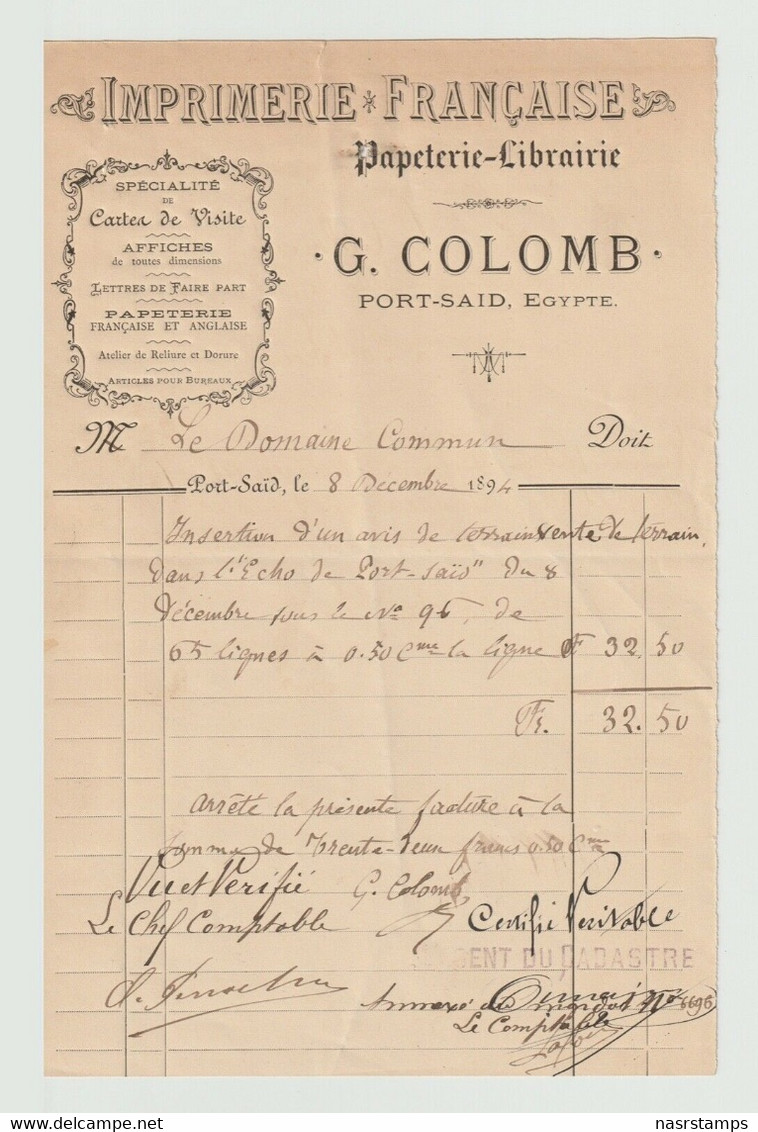 IMPRIMERIE FRANÇAISE
Papeterie-Librairie
SPÉCIALITÉ
DE
Cartes de Visite
AFFICHES
de toutes dimensions
LETTRES DE FAIRE PART
PAPETERIE
FRANÇAISE ET ANGLAISE
Atelier de Reliure et Dorure
ARTICLES POUR BUREAUX
· G. COLOMB ·
PORT-SAID, EGYPTE.
M Le Domaine Commun Doit
Port-Saïd, le 8 Décembre 1894
Insertion d'un avis de terrain vente de terrain,
dans l'Echo de Port-Saïd" du 8
décembre sous le No 96, de
65 lignes à 0.50 Cme la ligne F 32.50
Fr. 32.50
Arrêté la présente facture à la
somme de Trente-deux francs 0.50 Cme
Vu et Vérifié G. Colomb
Le Chef Comptable Certifié Véritable
AGENT DU CADASTRE
Annexé au mandat No 6696
Le Comptable
nasrstamps